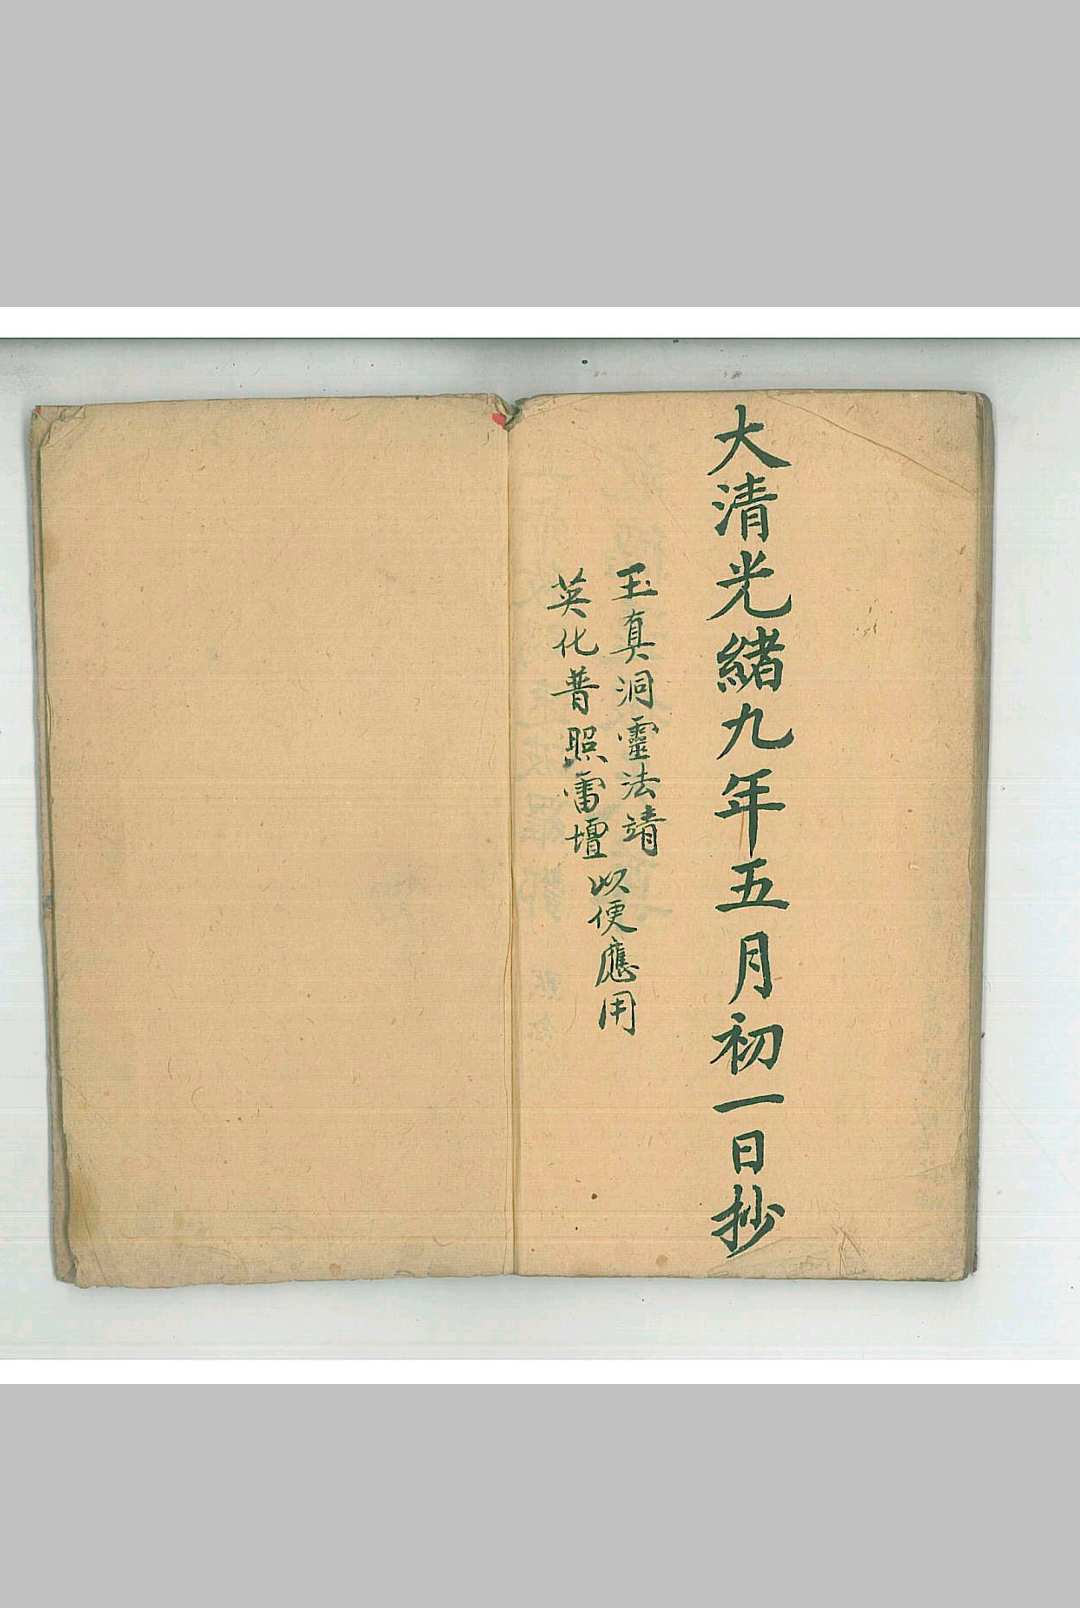 大清光緒九年五月初一日抄
玉真洞靈法靖
英化普照雷壇
以便應用